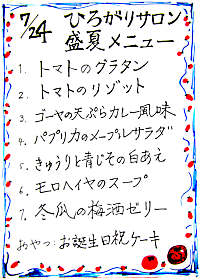 7/24 ひろがりサロン
盛夏メニュー
1. トマトのグラタン
2. トマトのリゾット
3. ゴーヤの天ぷらカレー風味
4. パプリカのメープルサラダ
5. きゅうりと青じその白あえ
6. モロヘイヤのスープ
7. 冬瓜の梅酒ゼリー
おやつ:お誕生日祝ケーキ